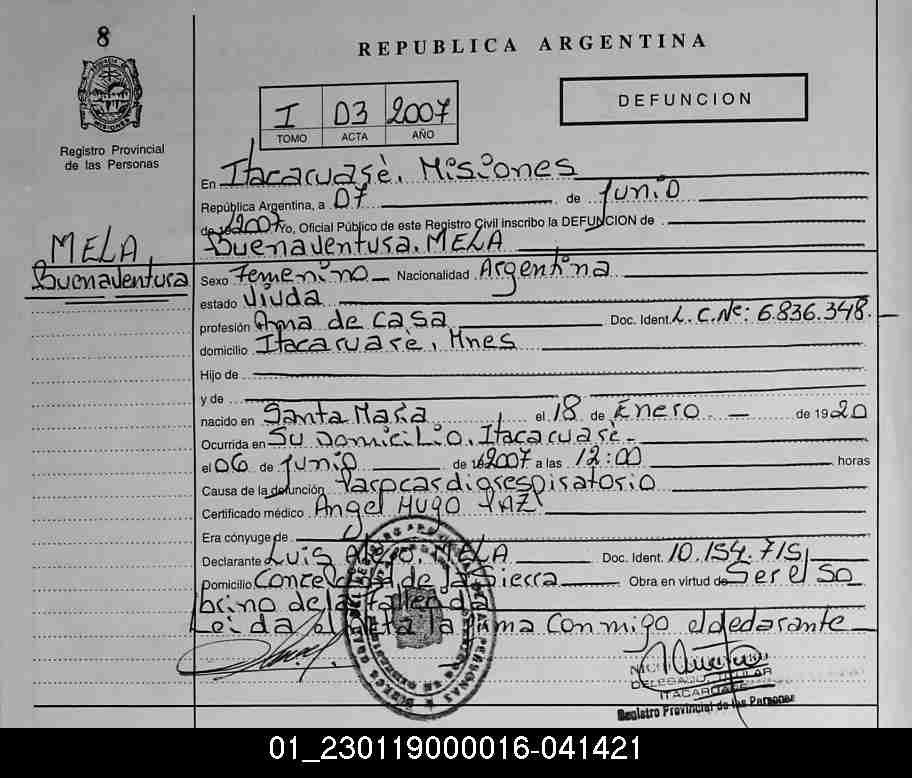 8
REPUBLICA ARGENTINA
I D3 2007
TOMO ACTA AÑO
DEFUNCION
Registro Provincial
de las Personas
En Itacaruasè. Misiones
República Argentina, a 07 de junio
de 2007 Yo, Oficial Público de este Registro Civil inscribo la DEFUNCION de
MELA Buenaventura. MELA
Buenaventura Sexo Femenino Nacionalidad Argentina
estado Viuda
profesión Ama de casa Doc. Ident. L.C.Nº: 6.836.348.
domicilio Itacaruasè, Mnes
Hijo de
y de
nacido en Santa María el 18 de Enero de 1920
Ocurrida en Su Domicilio. Itacaruasè
el 06 de junio de 2007 a las 12:00 horas
Causa de la defunción Parocardiorespiratorio
Certificado médico Angel Hugo PAZ
Era cónyuge de
Declarante Luis MELA Doc. Ident. 10.154.715
Domicilio Concepción de la Sierra Obra en virtud de Ser el So
brino de la Fallecida
Leida el Acta la Firma Conmigo el declarante
DELEGADO TITULAR
ITACARUARE
Registro Provincial de las Personas
01_230119000016-041421